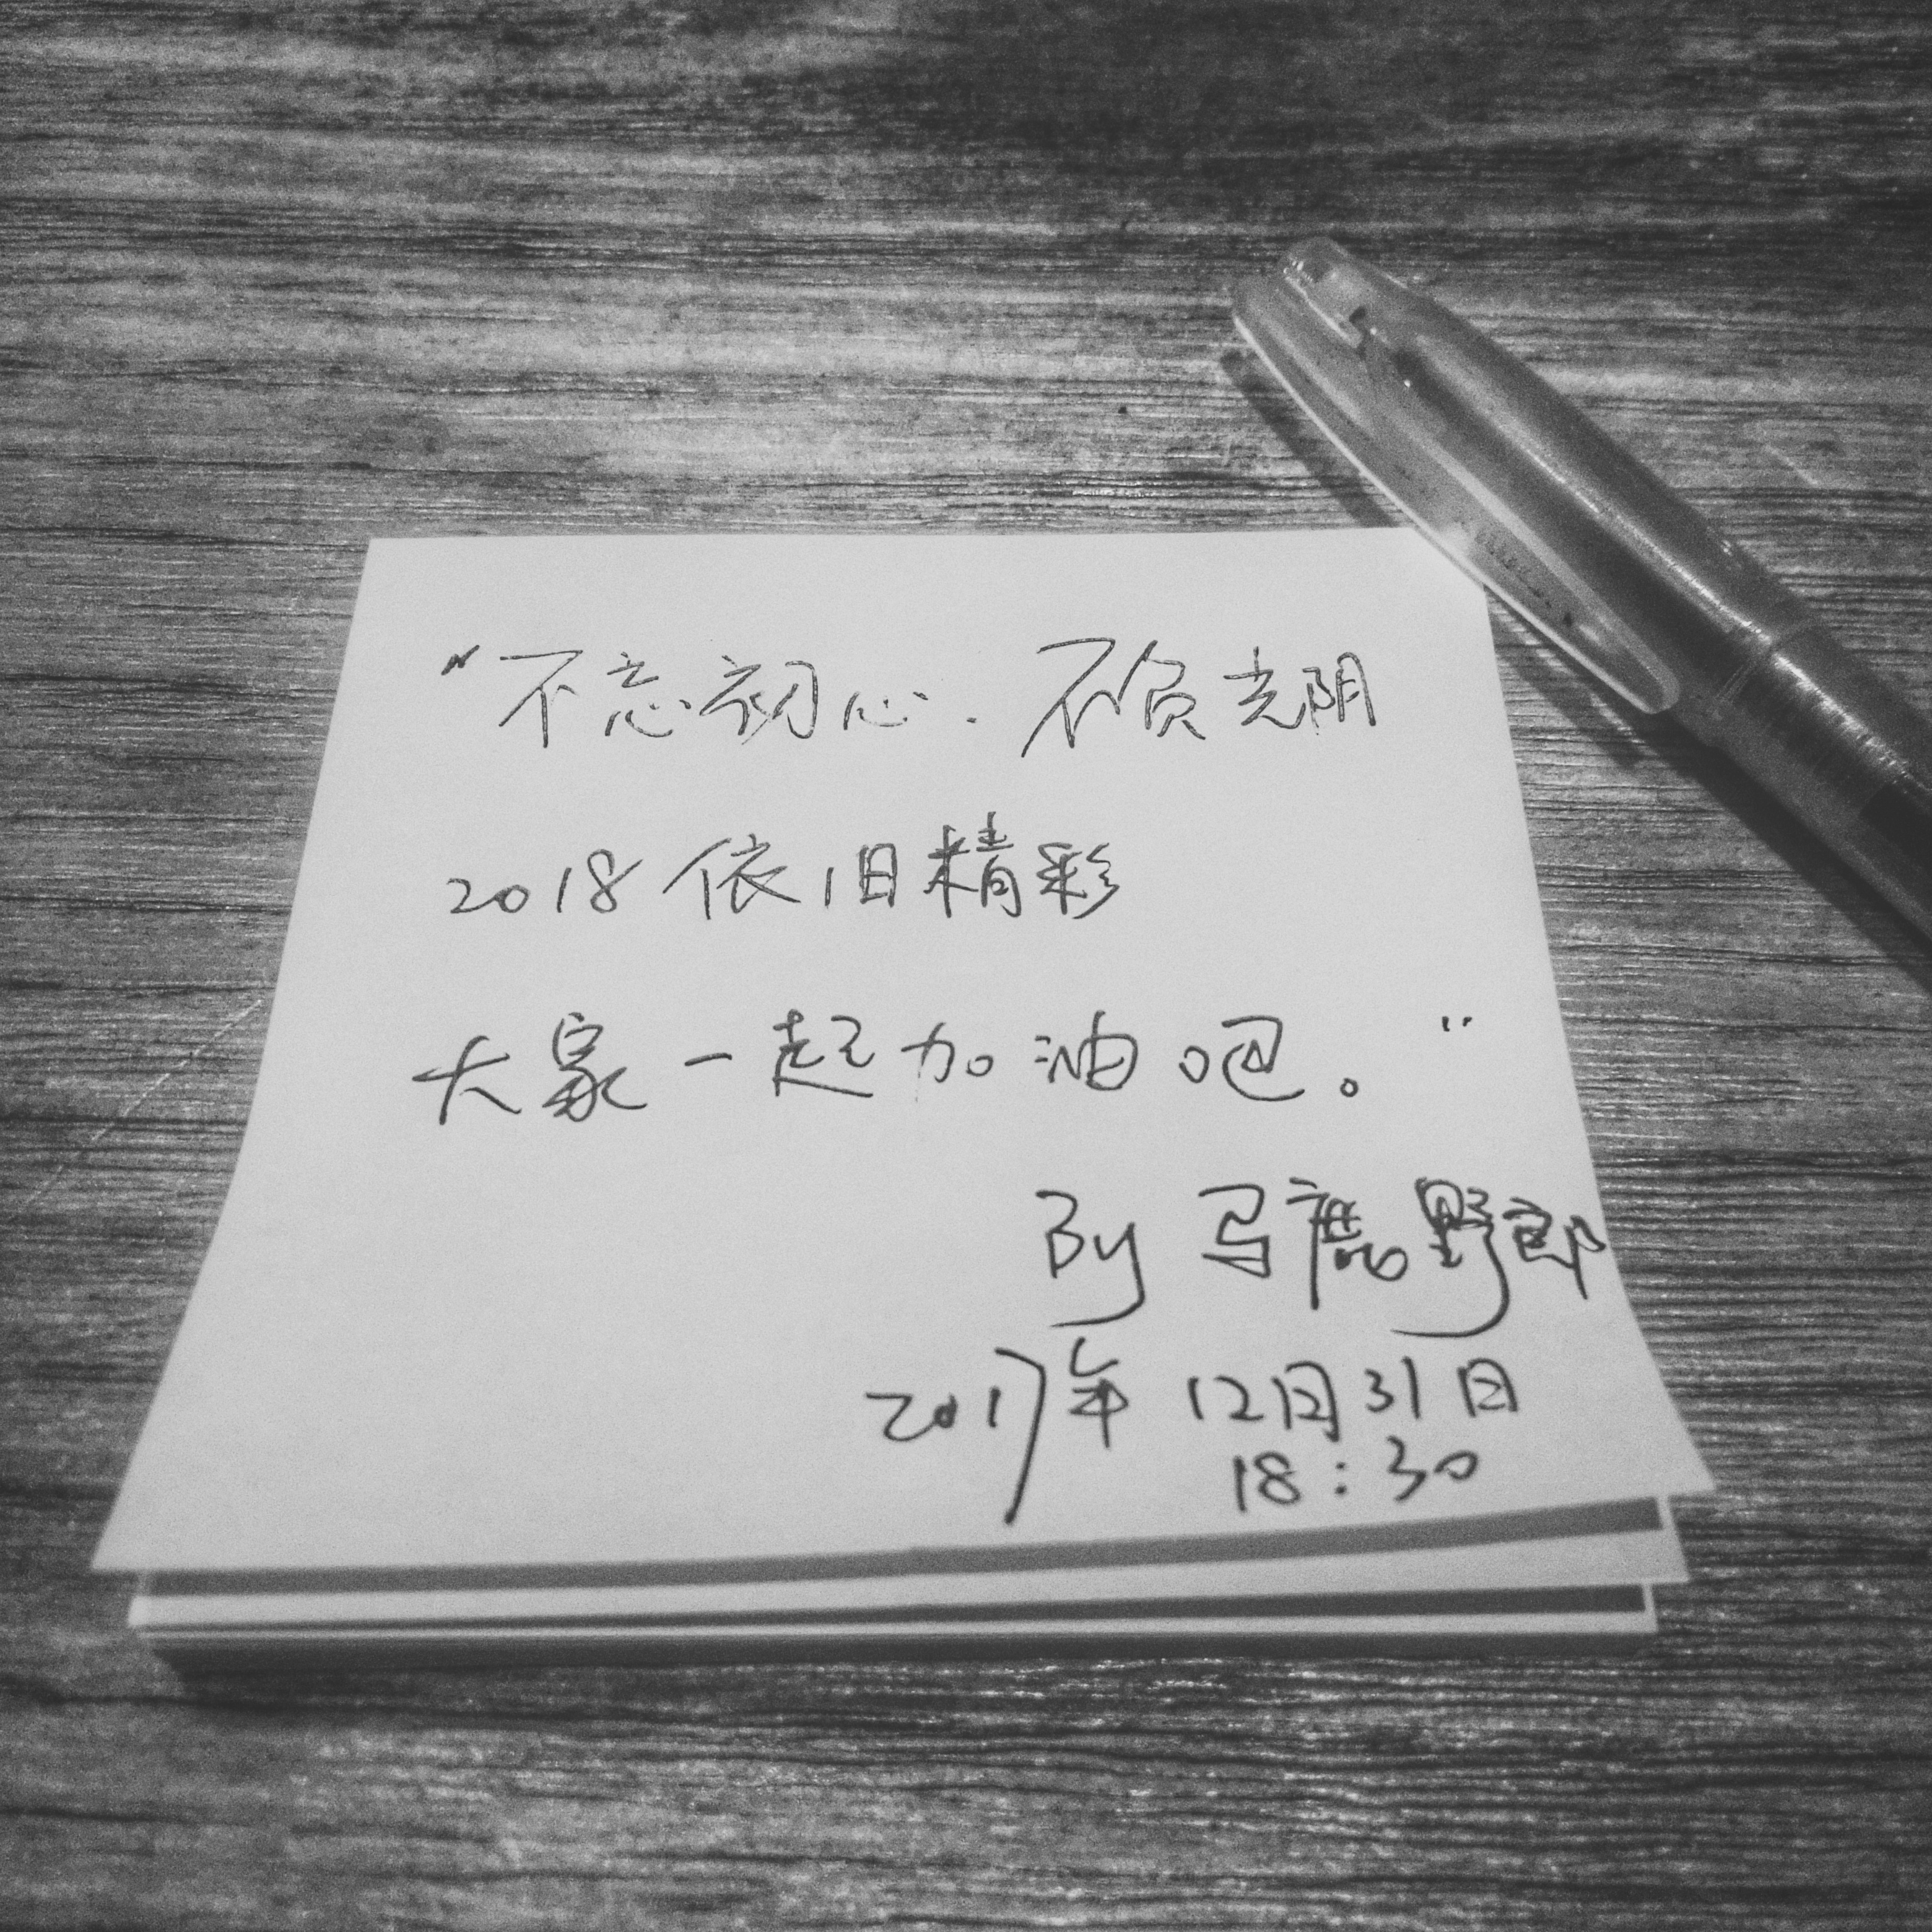 “不忘初心.不负光阴
2018依旧精彩
大家一起加油吧。”
By 马鹿野郎
2017年 12月31日
18:30